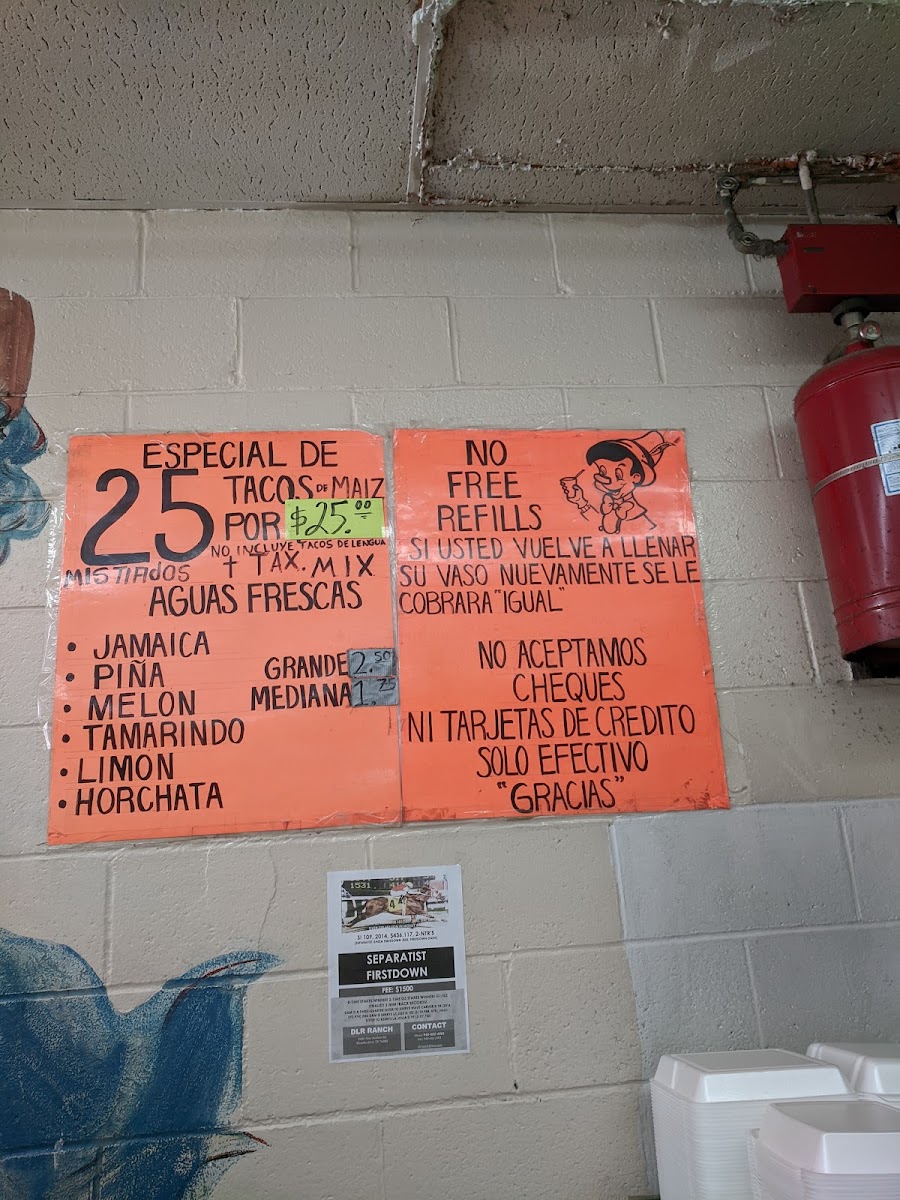 ESPECIAL DE
25 TACOS DE MAIZ
POR $25.00
NO INCLUYE TACOS DE LENGUA
MISTIADOS + TAX. MIX
AGUAS FRESCAS
• JAMAICA
• PIÑA
• MELON
• TAMARINDO
• LIMON
• HORCHATA
GRANDE 2.50
MEDIANA 1.75
NO
FREE
REFILLS
SI USTED VUELVE A LLENAR
SU VASO NUEVAMENTE SE LE
COBRARA "IGUAL"
NO ACEPTAMOS
CHEQUES
NI TARJETAS DE CREDITO
SOLO EFECTIVO
"GRACIAS"
1531
4
SI 109, 2014, $436,117, 2-NTR'S
SEPARATIST
FIRSTDOWN
FEE: $1500
DLR RANCH
CONTACT